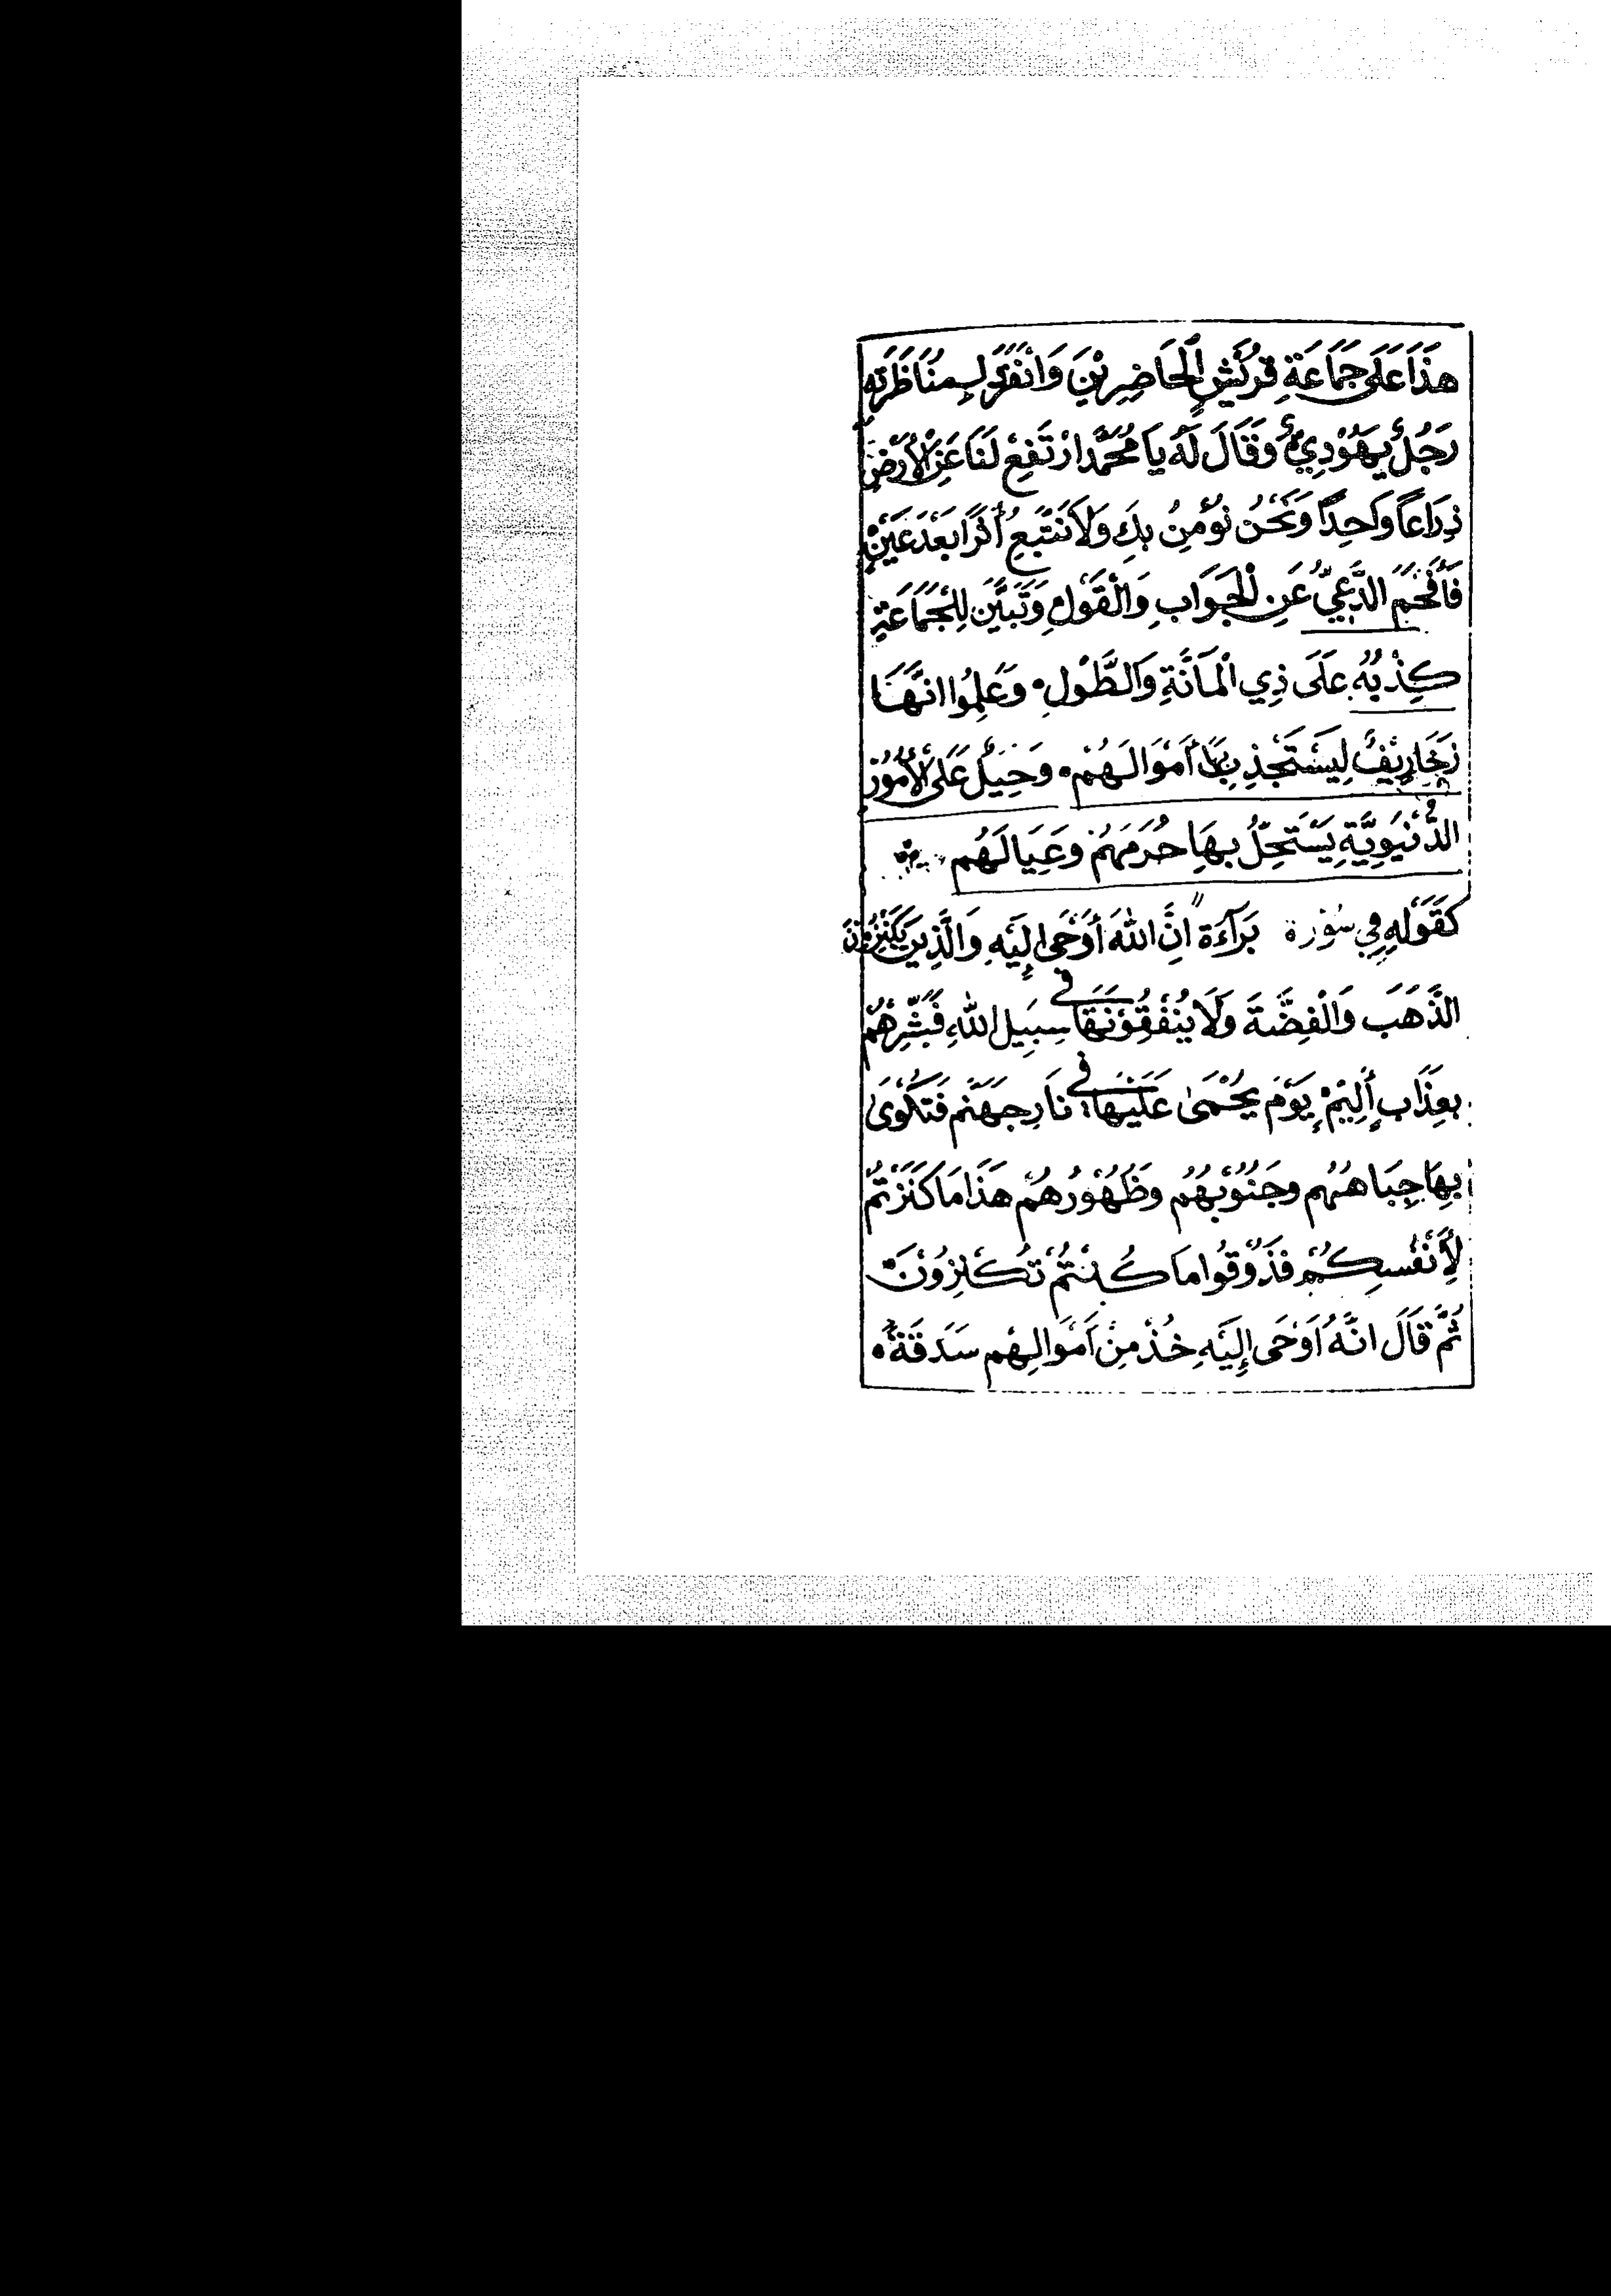 هَذَا عَلَى جَمَاعَةِ قُرَيْشٍ الْحَاضِرِيْنَ وَانْفَرَدَ لِمُنَاظَرَتِهِ
رَجُلٌ يَهُوْدِيٌّ وَقَالَ لَهُ يَا مُحَمَّدُ ارْتَفِعْ لَنَا عَنِ الْأَرْضِ
ذِرَاعًا وَاحِدًا وَنَحْنُ نُؤْمِنُ بِكَ وَلَا نَتَّبِعُ أَثَرًا بَعْدَ عَيْنٍ
فَأُفْحِمَ الدَّعِيُّ عَنِ الْجَوَابِ وَالْقَوْلِ وَتَبَيَّنَ لِلْجَمَاعَةِ
كِذْبُهُ عَلَى ذِي الْمَانَّةِ وَالطَّوْلِ وَعَلِمُوا انَّهَا
زَخَارِيْفُ لِيَسْتَجْذِبَ بِهَا أَمْوَالَهُمْ وَحِيَلٌ عَلَى الْأُمُوْرِ
الدُّنْيَوِيَّةِ يَسْتَحِلُّ بِهَا حُرَمَهُمْ وَعِيَالَهُم
كَقَوْلِهِ فِي سُوْرة بَرَآءَة انَّ اللهَ أَوْحَى إِلَيْهِ وَالَّذِينَ يَكْنِزُوْنَ
الذَّهَبَ وَالْفِضَّةَ وَلَا يُنْفِقُوْنَهَا فِي سَبِيْلِ اللهِ فَبَشِّرْهُمْ
بِعَذَابٍ أَلِيْمٍ يَوْمَ يُحْمَى عَلَيْهَا فِي نَارِ جَهَنَّم فَتُكْوَى
بِهَا جِبَاهُهُم وَجُنُوْبُهُم وَظُهُوْرُهُمْ هَذَا مَا كَنَزْتُمْ
لِأَنْفُسِكُمْ فَذُوْقُوا مَا كُنْتُمْ تَكْنِزُوْنَ
ثُمَّ قَالَ انَّهُ أَوْحَى إِلَيْهِ خُذْ مِنْ أَمْوَالِهِم سَدَقَةً